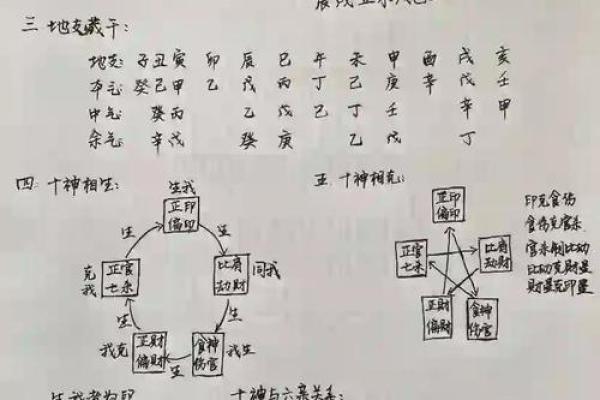 三 地支藏干:
地支: 子 丑 寅 卯 辰 巳 午 未 申 酉 戌 亥
本气: 癸 己 甲 乙 戊 丙 丁 己 庚 辛 戊 壬
中气: 癸 丙 乙 戊 己 丁 壬 辛 甲
余气: 辛 戊 癸 庚 乙 戊 丁
四 十神相生:
生我
正印
偏印
生
生
克我
正官
七杀
比肩
劫财
同我
生
生
我克
正财
偏财
生
食神
伤官
我生
五. 十神相克:
正印
偏印
正官
七杀
比肩
劫财
正财
偏财
食神
伤官
印克食伤
食伤克官杀
官杀制比劫
比劫克财星
财星克印星
生我者为印
十神与六亲关系: